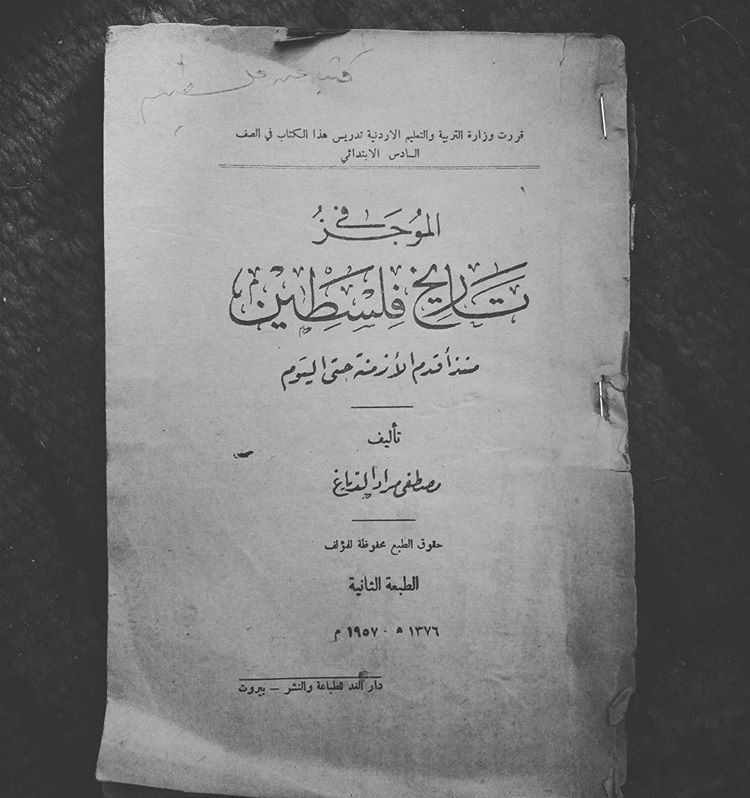 كتب عن فلسطين
قررت وزارة التربية والتعليم الاردنية تدريس هذا الكتاب في الصف
السادس الابتدائي
الموُجَـزُ في
تاريخ فلسطين
منذ أقدم الأزمنة حتى اليوم
تأليف
مصطفى مراد الدباغ
حقوق الطبع محفوظة للمؤلف
الطبعة الثانية
١٣٧٦ ه - ١٩٥٧ م
دار الغد للطباعة والنشر — بيروت